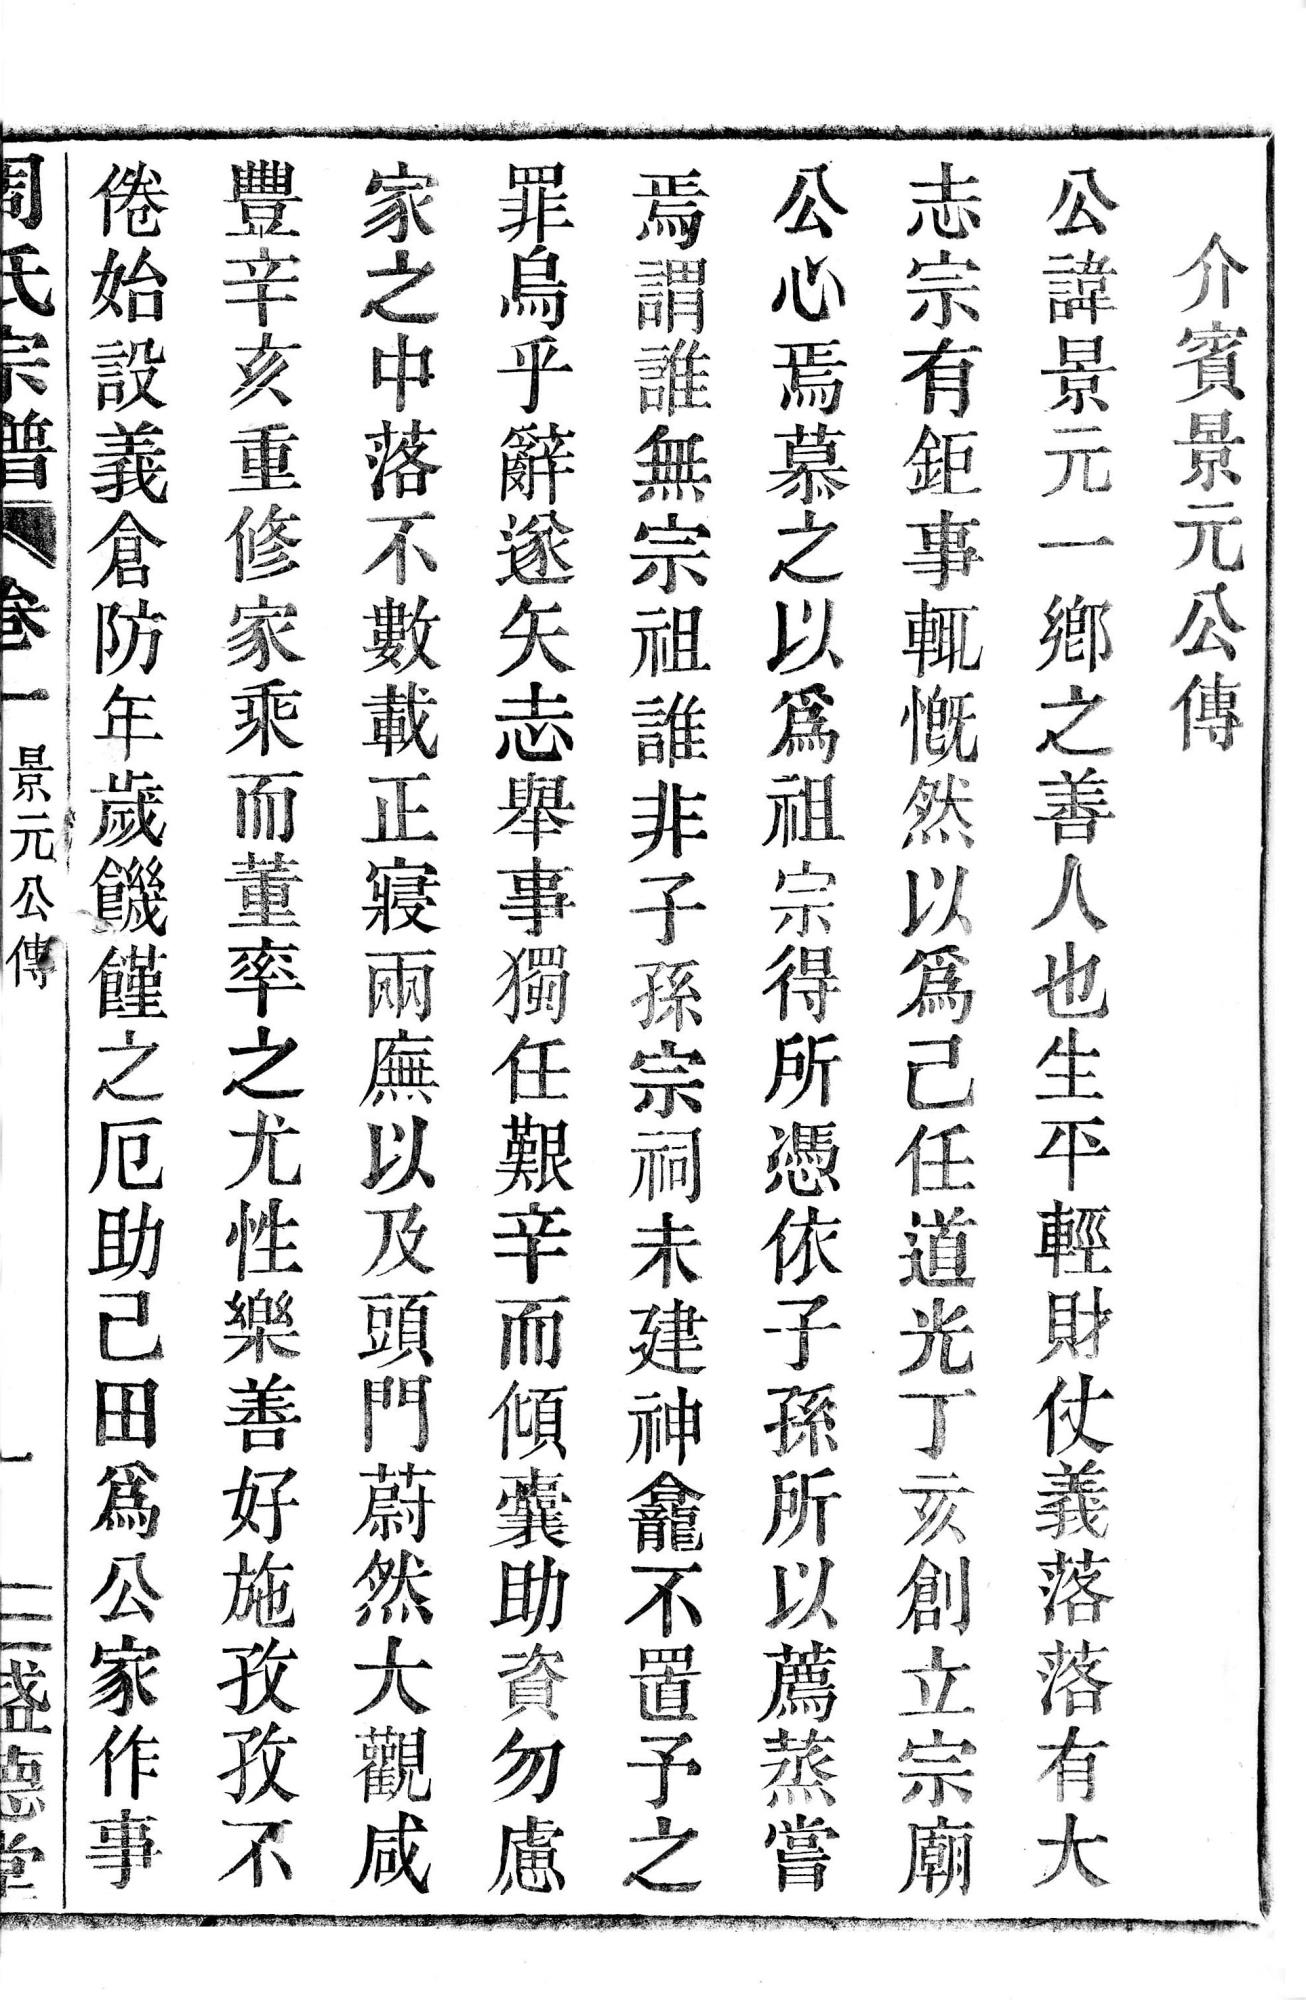 介賓景元公傳
公諱景元一鄉之善人也生平輕財仗義落落有大
志宗有鉅事輒慨然以爲己任道光丁亥創立宗廟
公心焉慕之以爲祖宗得所憑依子孫所以薦蒸嘗
焉謂誰無宗祖誰非子孫宗祠未建神龕不置予之
罪烏乎辭遂矢志舉事獨任艱辛而傾囊助資勿慮
家之中落不數載正寢兩廡以及頭門蔚然大觀咸
豐辛亥重修家乘而董率之尤性樂善好施孜孜不
倦始設義倉防年歲饑饉之厄助己田爲公家作事
周氏宗譜 卷一 景元公傳 一 三盛德堂